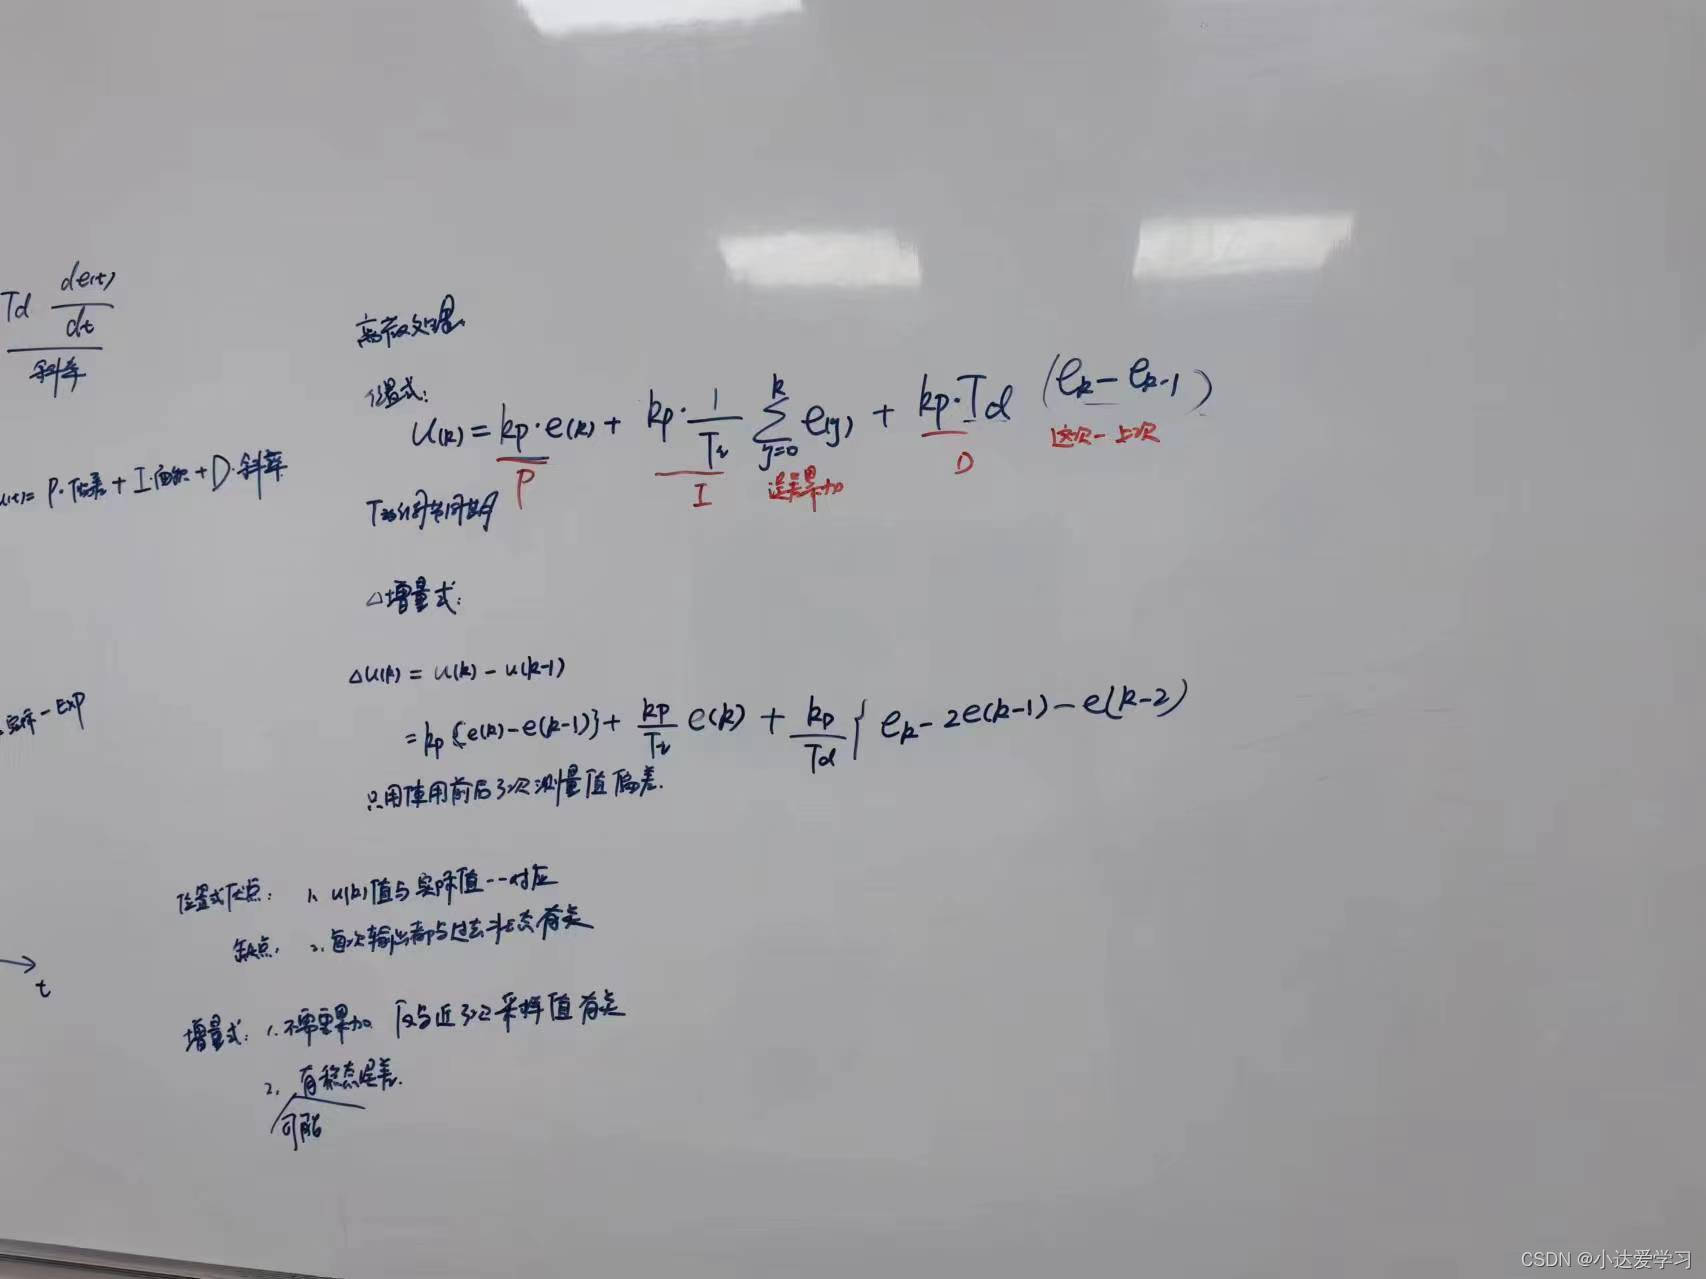 Td de(t)/dt
斜率
u(t)= P·偏差 + I·面积 + D·斜率
实际 - Exp
t
离散处理
位置式:
U(k) = kp·e(k) + kp·1/Ti Σ(j=0→k) e(j) + kp·Td (ek - ek-1)
P I 误差累加 D 这次-上次
T
△增量式:
△u(k) = u(k) - u(k-1)
= kp{e(k)-e(k-1)} + kp/Ti e(k) + kp/Td { ek - 2e(k-1) - e(k-2)
只用使用前后3次测量值偏差.
位置式优点: 1. u(k)值与实际值一一对应
缺点: 2. 每次输出都与过去状态有关
增量式: 1. 不需要累加 仅与近3次采样值有关
2. 有稳态误差.
可能
CSDN @小达爱学习